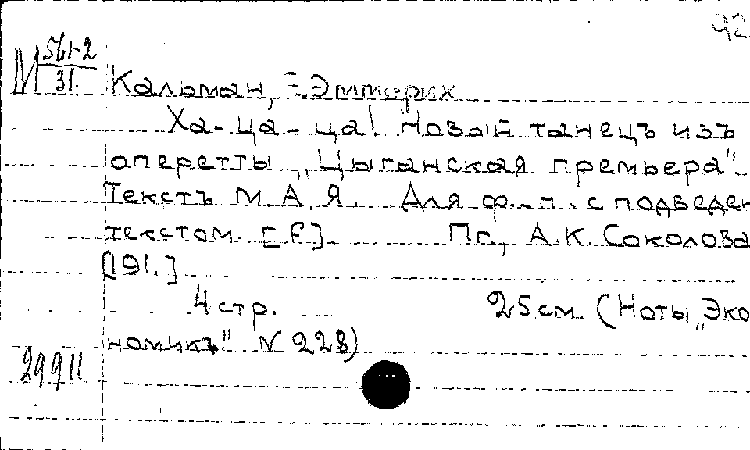 42
М 561-2
31
Кальман, Эммерих
Ха-ца-ца! Новый танецъ изъ
оперетты „Цыганская премьера".
Текстъ М.А.Я. Для ф.-п. с подведен
текстом. [F]. Пг., А.К. Соколова
[191.]
4 стр. 25 см. (Ноты „Эко
номикъ" N 228)
29911